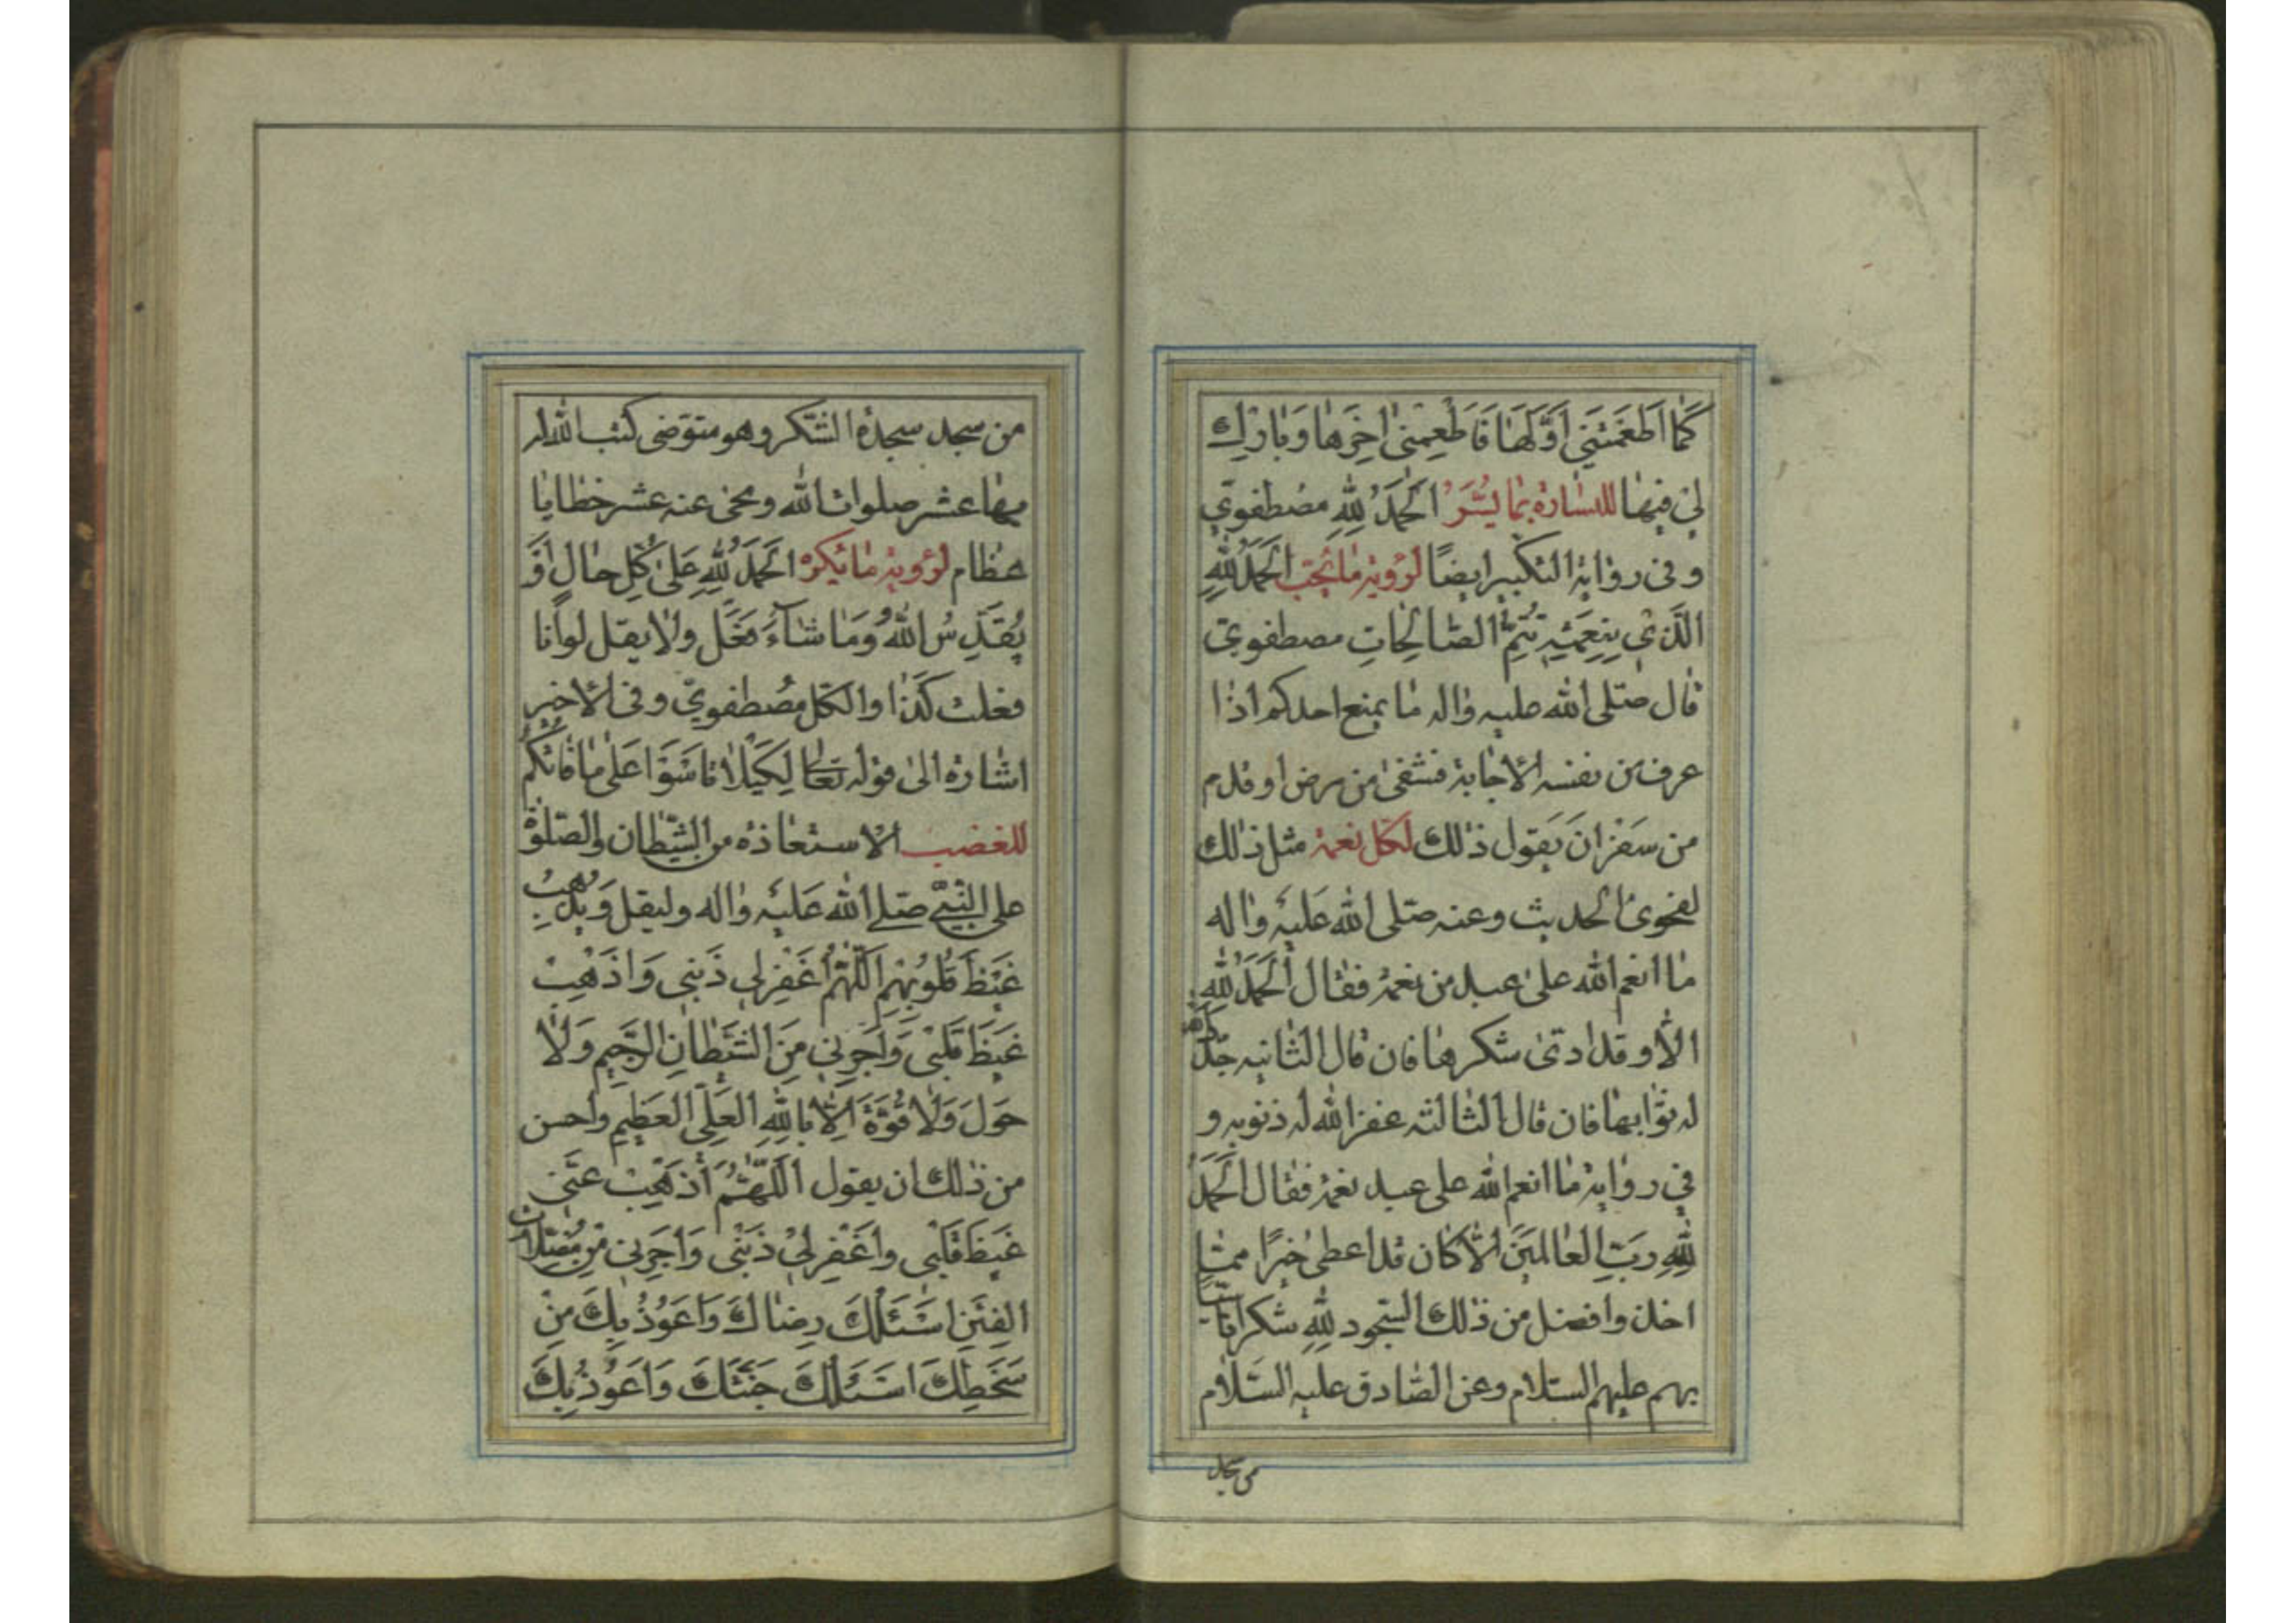 كَمَا اَطْعَمْتَنِي اَوَّلَهَا فَاَطْعِمْنِي اخِرَهَا وَبَارِكْ
لِي فِيهَا للبشارة بما يُسَرّ اَلْحَمْدُ لِلّهِ مصطفوي
وفي رواية التكبير ايضًا لرؤية ما يُحَبّ اَلْحَمْدُ لِلّهِ
الَّذِي بِنِعْمَتِهِ تَتِمُّ الصَّالِحَاتِ مصطفوي
قال صلى الله عليه واله ما يمنع احدكم اذا
عرف من نفسه الاجابة فشفى من مرض او قدم
من سفر ان يقول ذلك لكل نعمة مثل ذلك
لفحوى الحديث وعنه صلى الله عليه واله
ما انعم الله على عبد من نعمة فقال اَلْحَمْدُ لِلّهِ
الا وقد ادى شكرها فان قال الثانية جدد الله
له ثوابها فان قال الثالثة غفر الله له ذنوبه و
في رواية ما انعم الله على عبد نعمة فقال اَلْحَمْدُ
لِلّهِ رَبِّ الْعَالَمِينَ الا كان قد اعطى خيرًا مما
اخذ وافضل من ذلك السجود لله شكرا تاسّيا
بهم عليهم السلام وعن الصادق عليه السلام
من سجد
من سجد سجدة الشكر وهو متوضى كتب الله له
بها عشر صلوات الله ومحى عنه عشر خطايا
عظام لرؤية ما يكره اَلْحَمْدُ لِلّهِ عَلى كُلِّ حَالٍ اَوْ
يُقَدِّسُ اللهُ وَمَا شَاءَ فَعَلَ ولا يقل لو انا
فعلت كذا والكل مصطفوي وفي الاخير
اشارة الى قوله تعالى لِكَيْلا تَاْسَوْا عَلى مَا فَاتَكُمْ
للغضب الاستعاذة من الشيطان والصلوة
على النبي صلى الله عليه واله وليقل وَيُذْهِبْ
غَيْظَ قُلُوبِهِمْ اَللّهُمَّ اغْفِرْ لِي ذَنْبِي وَاذْهِبْ
غَيْظَ قَلْبِي وَاَجِرْنِي مِنَ الشَّيْطَانِ الرَّجِيمِ وَلا
حَوْلَ وَلا قُوَّةَ اِلا بِاللهِ الْعَلِيِّ الْعَظِيمِ واحسن
من ذلك ان يقول اَللّهُمَّ اَذْهِبْ عَنِّي
غَيْظَ قَلْبِي وَاغْفِرْ لِي ذَنْبِي وَاَجِرْنِي مِنْ مُضِلاّتِ
الْفِتَنِ اَسْئَلُكَ رِضَاكَ وَاَعُوذُ بِكَ مِنْ
سَخَطِكَ اَسْئَلُكَ جَنَّتَكَ وَاَعُوذُ بِكَ